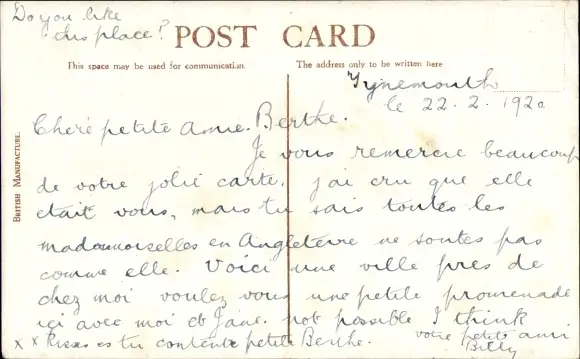 Do you like
this place?
POST CARD
This space may be used for communication.
The address only to be written here
BRITISH MANUFACTURE.
Tynemouth
le 22.2.1920
Chère petite amie. Berthe.
Je vous remercie beaucoup
de votre jolie carte. j'ai cru que elle
etait vous, mais tu sais toutes les
madamoiselles en Angleterre ne sontes pas
comme elle. Voici une ville pres de
chez moi voulez vous une petite promenade
ici avec moi et Jane. not possible I think
x x es tu contente petite Berthe.
votre petit ami
Billy